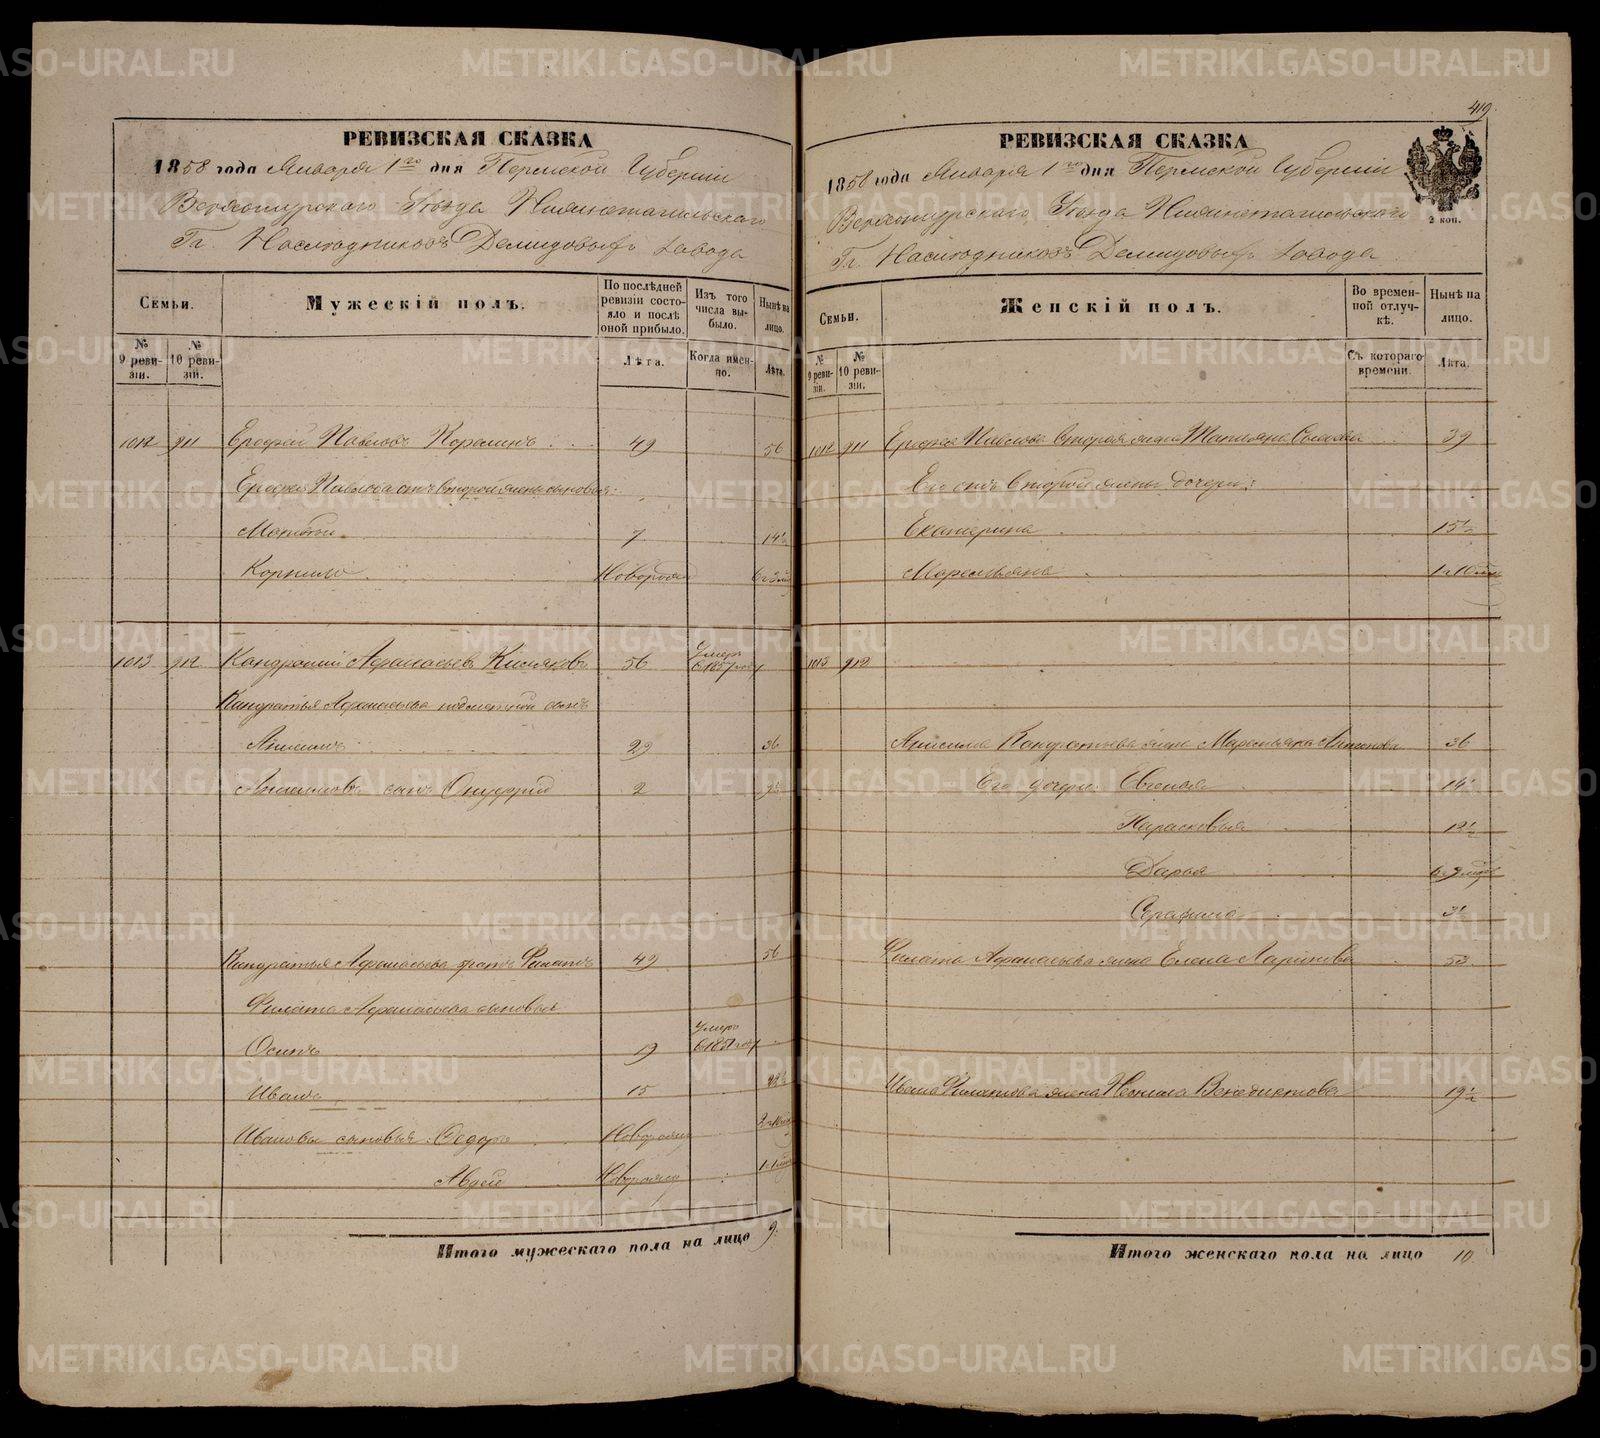 419
РЕВИЗСКАЯ СКАЗКА
1858 года Января 1го дня Пермской Губернии
Верхотурскаго Уѣзда Нижнетагильскаго
Гг. Наслѣдниковъ Демидовыхъ Завода
Семьи.
Мужескій полъ.
По послѣдней ревизіи состояло и послѣ оной прибыло.
Изъ того числа выбыло.
Нынѣ на лицо.
№ 9 ревизіи.
№ 10 ревизіи.
Лѣта.
Когда именно.
Лѣта.
1012 911 Ерофей Павловъ Корелинъ 49 56
Ерофея Павлова отъ второй жены сыновья:
Матвей 7 14½
Корнило Новорожд
1013 912 Кандратий Афанасьевъ Кисляковъ 56 Умеръ в 1857 году
Кандратья Афанасьева сынъ
Анисимъ 29 36
Анисимовъ сынъ Онуфрий 2 9½
Кандратья Афанасьева братъ Филатъ 49 56
Филата Афанасьева сыновья
Осипъ 19 Умеръ в 1851 году
Иванъ 15 22½
Ивановы сыновья Федоръ Новорожд
Авдей Новорожд
Итого мужескаго пола на лицо 9.
РЕВИЗСКАЯ СКАЗКА
1858 года Января 1го дня Пермской Губерніи
2 коп.
Верхотурскаго Уѣзда Нижнетагильскаго
Гг. Наслѣдниковъ Демидовыхъ Завода
Семьи.
Женскій полъ.
Во временной отлучкѣ.
Нынѣ на лицо.
№ 9 ревизіи.
№ 10 ревизіи.
Съ котораго времени.
Лѣта.
1012 911 Ерофея Павлова вторая жена Татьяна 39
Его отъ второй жены дочери:
Екатерина 15½
Маремьяна 1 г 10 мѣс
1013 912
Анисима Кандратьева жена Маремьяна Антонова 36
Его дочери: Евгенья 14½
Парасковья 12½
Дарья 6 г 9 мѣс
Серафима 3½
Филата Афанасьева жена Елена Ларионова 53
Ивана Филатова жена Неонила Венедиктова 19½
Итого женскаго пола на лицо 10
METRIKI.GASO-URAL.RU